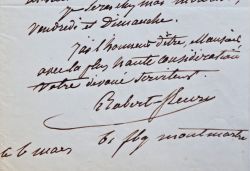 je serai chez moi
vendredi & Dimanche.
j'ai l'honneur d'être, Monsieur
avec la plus haute considération
votre dévoué serviteur.
Robert Fleury
ce 6 mars 61 fbg montmartre